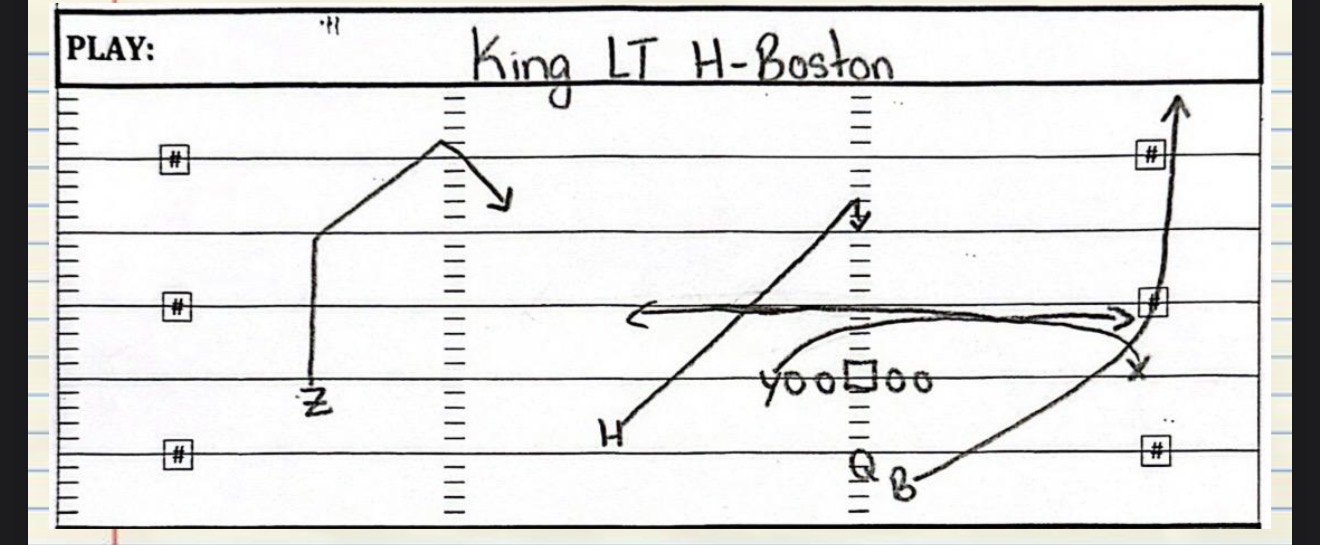 PLAY: King LT H-Boston
# #
# #
Z Y O O O O X
H
# Q B #